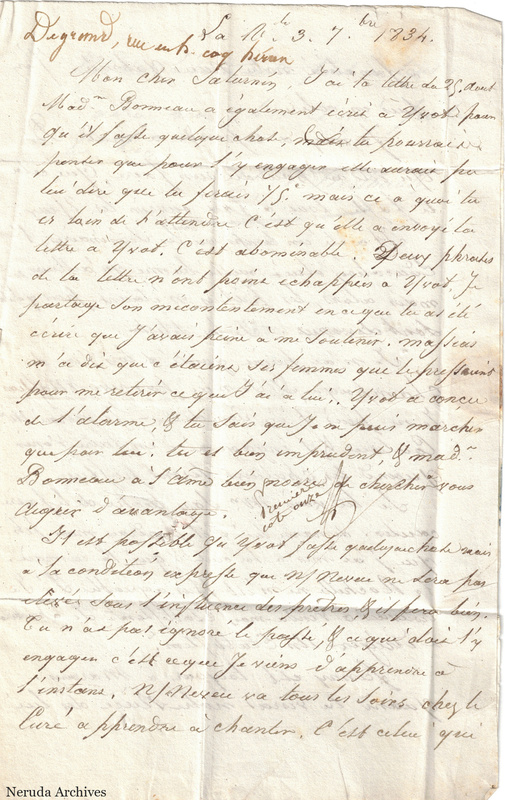 Degrand, rue coq héron
La Rle 3. 7bre 1834.
Mon cher Saturnin, J'ai ta lettre du 25. aout
Made Bonneau a également écrit à Yvot pour
qu'il fasse quelque chose, tu pourrais
penser que pour l'y engager elle aurait pu
lui dire que tu ferais 1/5e mais ce à quoi tu
es loin de t'attendre c'est qu'elle a envoyé ta
lettre à Yvot. C'est abominable. Deux phrases
de ta lettre n'ont point échappés à Yvot. Je
partage son mécontentement en ce que tu as été
écrire que J'avais peine à me soutenir. massias
m'a dit que c'étaient ses femmes que le pressaient
pour me retirer ce que J'ai à lui. Yvot a conçu
de l'alarme, & tu sais que Je ne puis marcher
que par lui. tu es bien imprudent, & made
Bonneau a l'âme bien noire de chercher vous
aigrir d'avantage.
Premiere
cote onze
Il est possible qu'Yvot fasse quelque chose mais
à la condition expresse que M/ Neveu ne sera pas
élevé sous l'influence des prêtres, & il fera bien.
Tu n'as pas ignoré le passé, & ce qui doit l'y
engager c'est ce que Je viens d'apprendre à
l'instant. M/ Neveu va tous les soirs chez le
Curé apprendre à chanter. C'est celui qui
Neruda Archives